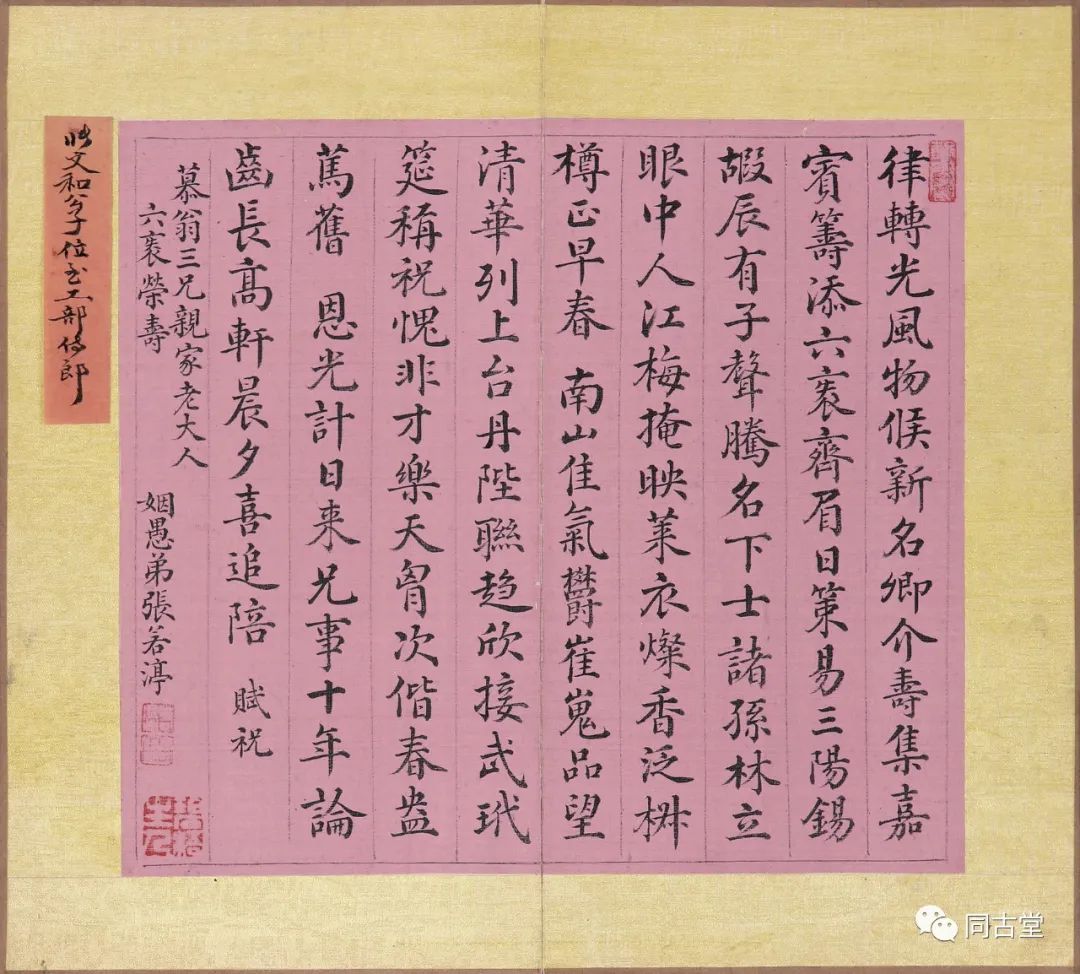 律轉光風物候新名卿介壽集嘉
賓籌添六袠齊眉日策易三陽錫
嘏辰有子聲騰名下士諸孫林立
眼中人江梅掩映萊衣燦香泛椒
樽正早春 南山佳氣欝崔嵬品望
清華列上台丹陛聯趋欣接武玳
筵稱祝愧非才樂天胷次偕春盎
萬舊 恩光計日来兄事十年論
齒長高軒晨夕喜追陪 賦祝
慕翁三兄親家老大人
六袠榮壽
姻愚弟張若渟
文和公子位至工部侍郎
同古堂